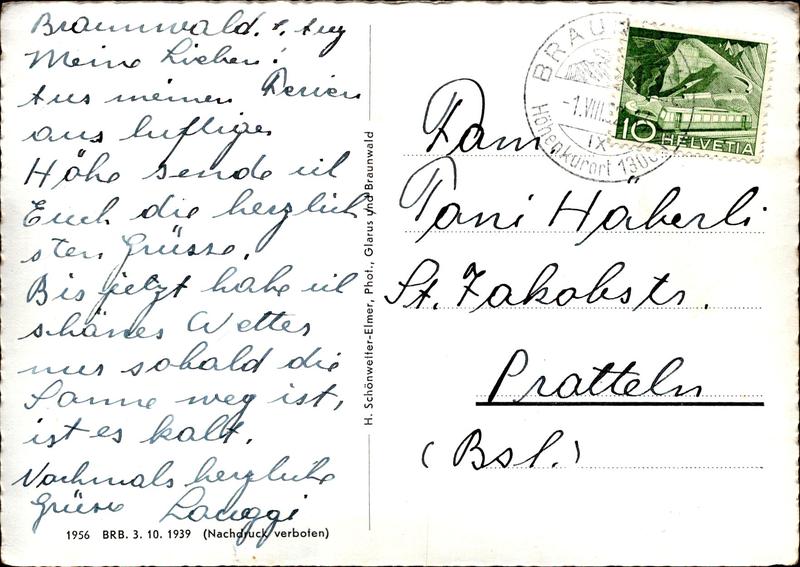 Braunwald. 1. Aug
Meine Lieben!
Aus meinen Ferien
aus luftiger
Höhe sende ich
Euch die herzlich
sten Grüsse.
Bis jetzt habe ich
schönes Wetter
nur sobald die
Sonne weg ist,
ist es kalt.
Nochmals herzliche
Grüsse
1956 BRB. 3. 10. 1939 (Nachdruck verboten)
H. Schönwetter-Elmer, Phot., Glarus und Braunwald
BRAUN
-1.VIII.5
IX
Höhenkurort 1300
10 HELVETIA
Fam.
Toni Häberli
St. Jakobstr.
Pratteln
(Bsl.)